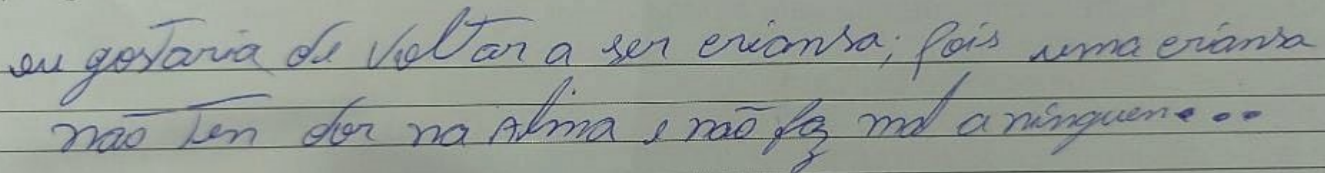 eu gostaria de Voltar a ser criansa; pois uma criansa
não tem dor na Alma e não faz mal a ninguem...